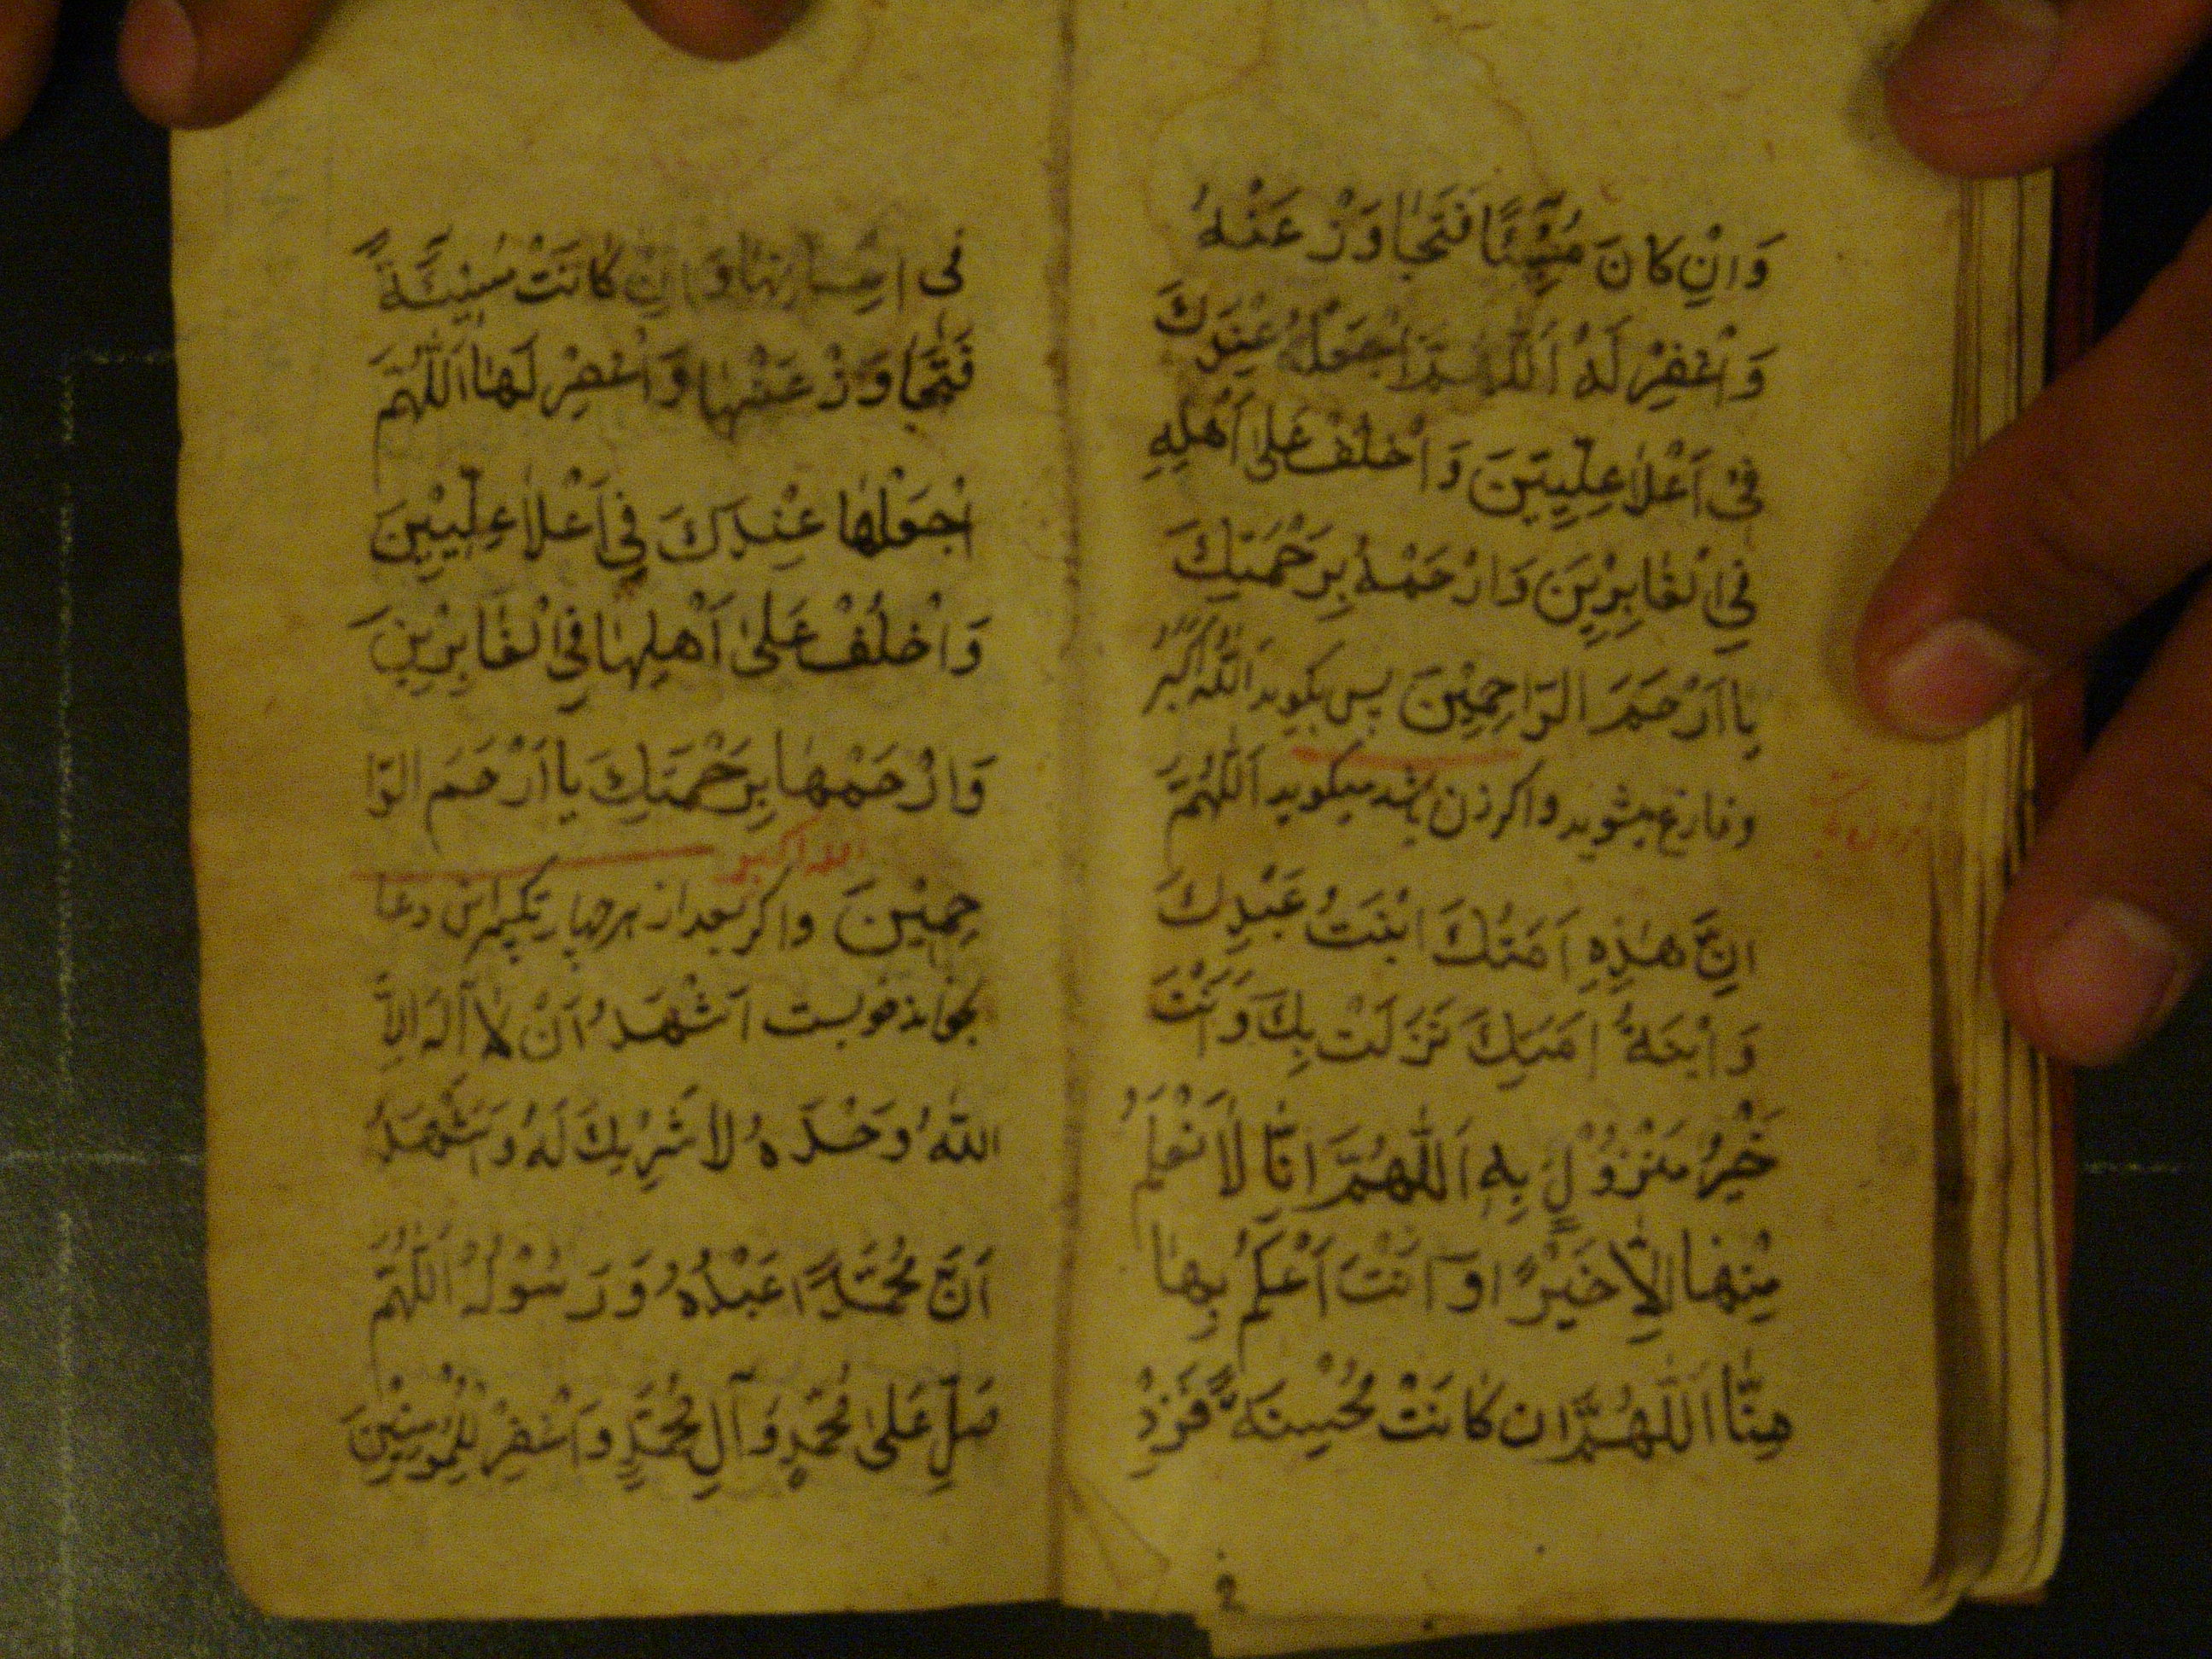 وَاِنْ كانَ مُسِيْئًا فَتَجاوَزْ عَنْهُ
وَاغْفِرْ لَهُ اَللّهُمَّ اجْعَلْهُ عِنْدَكَ
فىْ اَعْلا عِلِّيّينَ وَاخْلُفْ عَلى اَهْلِهِ
فِى الْغابِرِيْنَ وَارْحَمْهُ بِرَحْمَتِكَ
يا اَرْحَمَ الرَّاحِمِيْنَ پس بكويد اَللّهُ اَكْبَرُ
وفارغ ميشويد واكر زن باشد ميكويد اَللّهُمَّ
اِنَّ هذِهِ اَمَتُكَ ابْنَتُ عَبْدِكَ
وَابْنَةُ اَمَتِكَ نَزَلَتْ بِكَ وَاَنْتَ
خَيْرُ مَنْزُوْلٍ بِهِ اَللّهُمَّ اِنّا لا نَعْلَمُ
مِنْها اِلاّ خَيْرًا وَ اَنْتَ اَعْلَمُ بِها
مِنّا اَللّهُمَّ اِن كانَتْ مُحْسِنَةً فَزِدْ
فى اِحْسانِها وَ اِنْ كانَتْ مُسِيْئَةً
فَتَجاوَزْ عَنْها وَاغْفِرْ لَها اَللّهُمَّ
اجْعَلْها عِنْدَكَ فى اَعْلا عِلِّيّيْنَ
وَاخْلُفْ عَلى اَهْلِها فِى الْغابِرِيْنَ
وَارْحَمْها بِرَحْمَتِكَ يا اَرْحَمَ الرّا
الله اكبر
حِمِيْنَ واكر بعد از هر چهار تكبير اين دعا
بخواند خوبست اَشْهَدُ اَنْ لا اِلهَ اِلاَّ
اللّهُ وَحْدَهُ لا شَرِيْكَ لَهُ وَاَشْهَدُ
اَنَّ مُحَمَّدًا عَبْدُهُ وَرَسُوْلُهُ اَللّهُمَّ
صَلِّ عَلى مُحَمَّدٍ وَآلِ مُحَمَّدٍ وَاغْفِرْ لِلْمُؤمِنِيْنَ